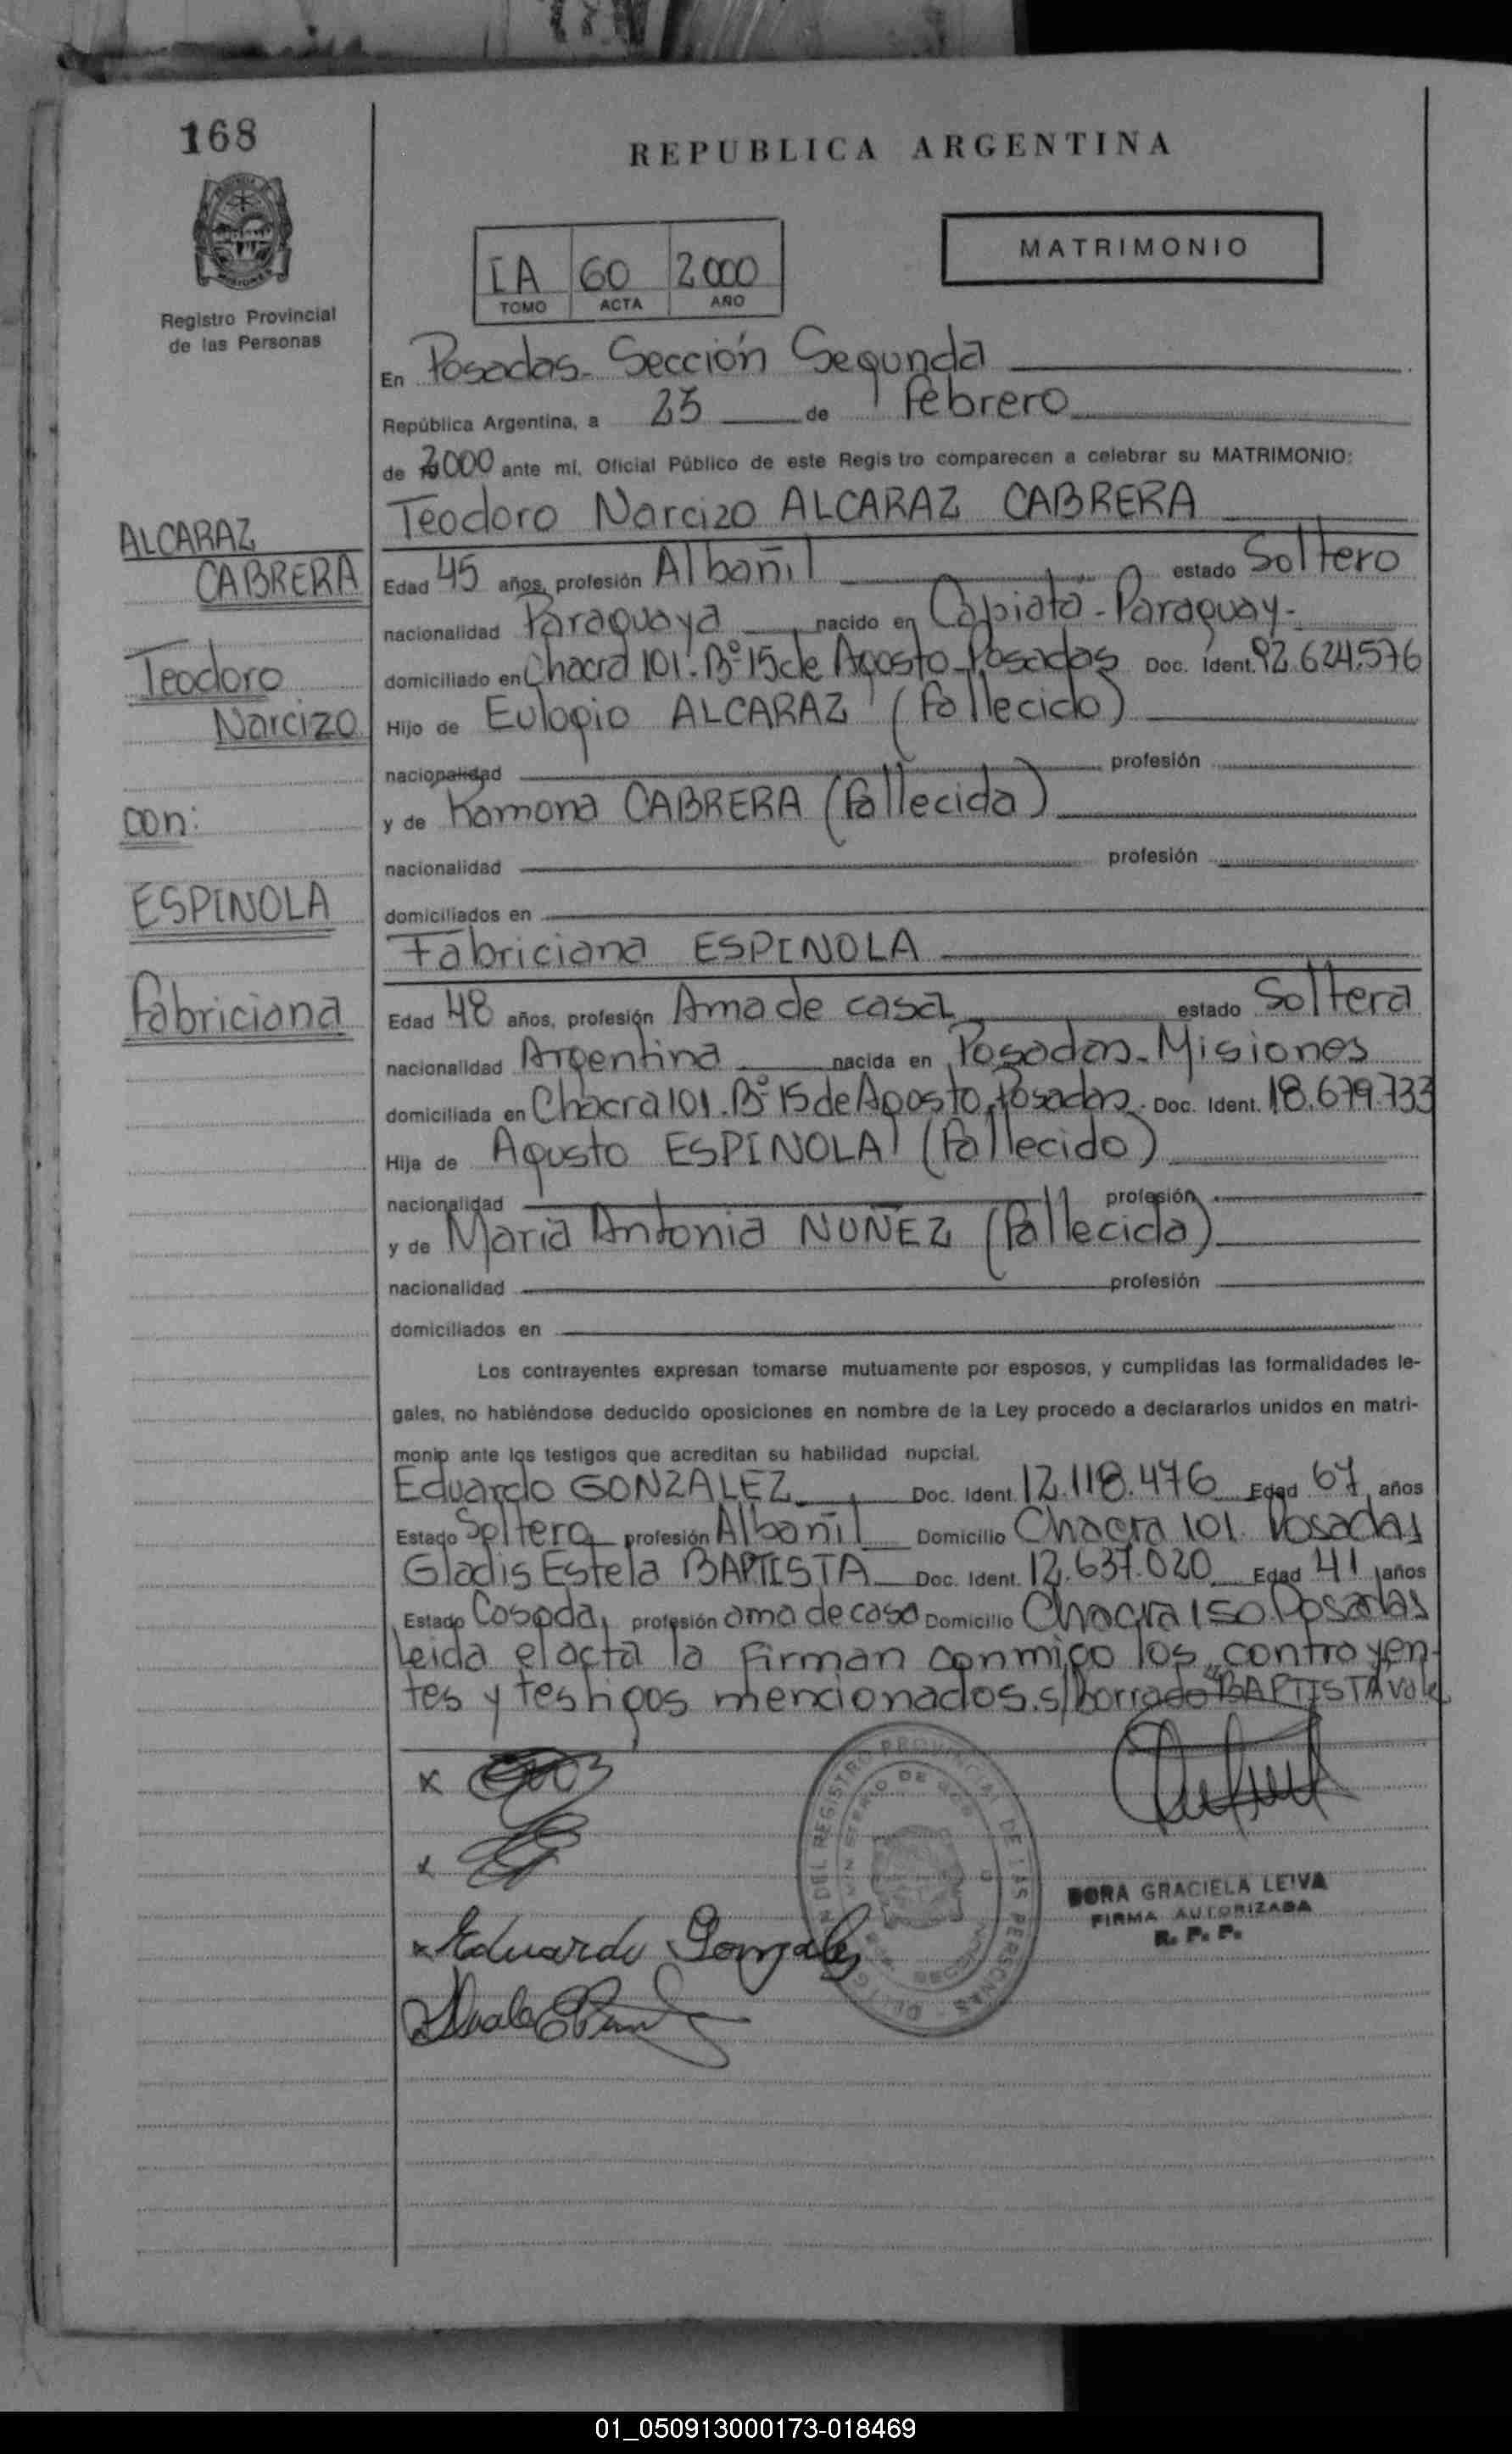 168
REPUBLICA ARGENTINA
MATRIMONIO
IA 60 2000
TOMO ACTA AÑO
Registro Provincial
de las Personas
En Posadas - Sección Segunda
República Argentina, a 25 de febrero
de 2000 ante mí, Oficial Público de este Registro comparecen a celebrar su MATRIMONIO:
Teodoro Narcizo ALCARAZ CABRERA
ALCARAZ
CABRERA
Teodoro
Narcizo
con:
ESPINOLA
Fabriciana
Edad 45 años, profesión Albañil estado Soltero
nacionalidad Paraguaya nacido en Capiata - Paraguay -
domiciliado en Chacra 101. Bº 15 de Agosto - Posadas Doc. Ident. 92.624.576
Hijo de Eulogio ALCARAZ (Fallecido)
nacionalidad profesión
y de Ramona CABRERA (Fallecida)
nacionalidad profesión
domiciliados en
Fabriciana ESPINOLA
Edad 48 años, profesión Ama de casa estado Soltera
nacionalidad Argentina nacida en Posadas - Misiones
domiciliada en Chacra 101. Bº 15 de Agosto, Posadas. Doc. Ident. 18.679.733
Hija de Agusto ESPINOLA (Fallecido)
nacionalidad profesión
y de Maria Antonia NUÑEZ (Fallecida)
nacionalidad profesión
domiciliados en
Los contrayentes expresan tomarse mutuamente por esposos, y cumplidas las formalidades le-
gales, no habiéndose deducido oposiciones en nombre de la Ley procedo a declararlos unidos en matri-
monio ante los testigos que acreditan su habilidad nupcial.
Eduardo GONZALEZ Doc. Ident. 12.118.476 Edad 67 años
Estado Soltero profesión Albañil Domicilio Chacra 101. Posadas
Gladis Estela BAPTISTA Doc. Ident. 12.637.020 Edad 41 años
Estado Casada, profesión ama de casa Domicilio Chacra 150. Posadas
Leida el acta la firman conmigo los contrayen-
tes y testigos mencionados. s/borrado "BAPTISTA Vale
x
x
x Eduardo Gonzalez
DORA GRACIELA LEIVA
FIRMA AUTORIZADA
R. P. P.
01_050913000173-018469